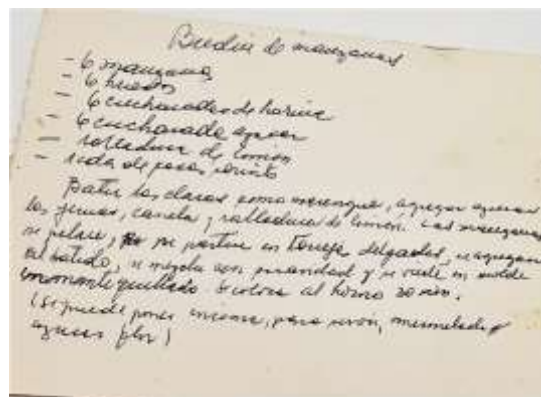 Budin de manzanas
- 6 manzanas
- 6 huevos
- 6 cucharadas de harina
- 6 cucharada azucar
- ralladura de limón
- de pasas
Batir las claras como merengue, agregar azucar
las yemas, canela y ralladura de limón. Las manzanas
se pelan, se parten en torrejas delgadas, se agregan
al batido, se mezcla con suavidad y se vacía en molde
enmantequillado se coloca al horno 30 min.
(se puede poner encima, para servir, mermelada
azucar flor)